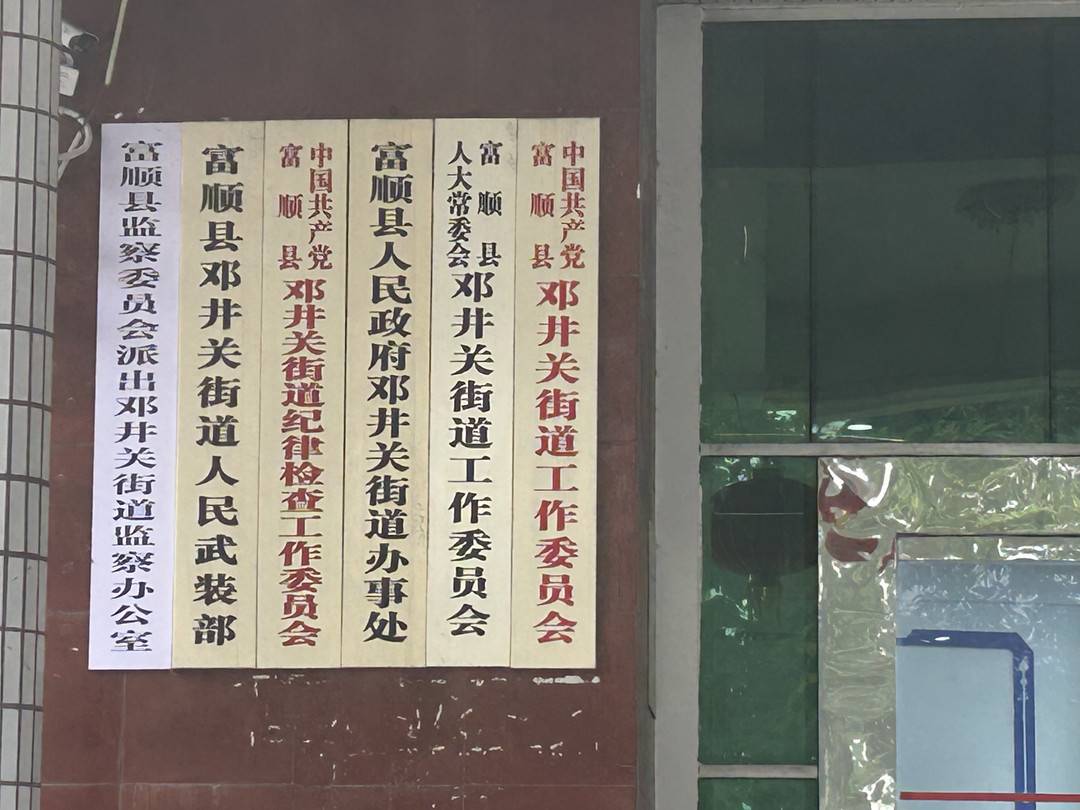 中国共产党富顺县邓井关街道工作委员会
富顺县人大常委会邓井关街道工作委员会
富顺县人民政府邓井关街道办事处
中国共产党富顺县邓井关街道纪律检查工作委员会
富顺县邓井关街道人民武装部
富顺县监察委员会派出邓井关街道监察办公室